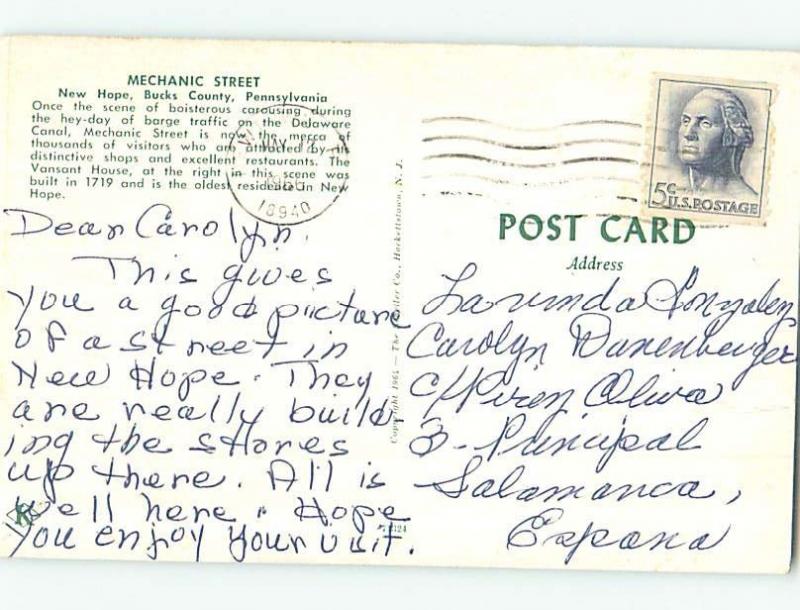 MECHANIC STREET
New Hope, Bucks County, Pennsylvania
Once the scene of boisterous carousing during
the hey-day of barge traffic on the Delaware
Canal, Mechanic Street is now the mecca of
thousands of visitors who are attracted by its
distinctive shops and excellent restaurants. The
Vansant House, at the right in this scene was
built in 1719 and is the oldest residence in New
Hope.
MAY
18940
5¢
U.S. POSTAGE
POST CARD
Address
Dear Carolyn.
This gives
you a good picture
of a street in
New Hope. They
are really build
ing the stores
up there. All is
Well here. Hope
you enjoy your visit.
Copyright 1964 — The Co., Hackettstown, N. J.
K
Larinda Gonzalez
Carolyn Danenberger
C/Peron, Oliva
3 - Principal
Salamanca,
Espana